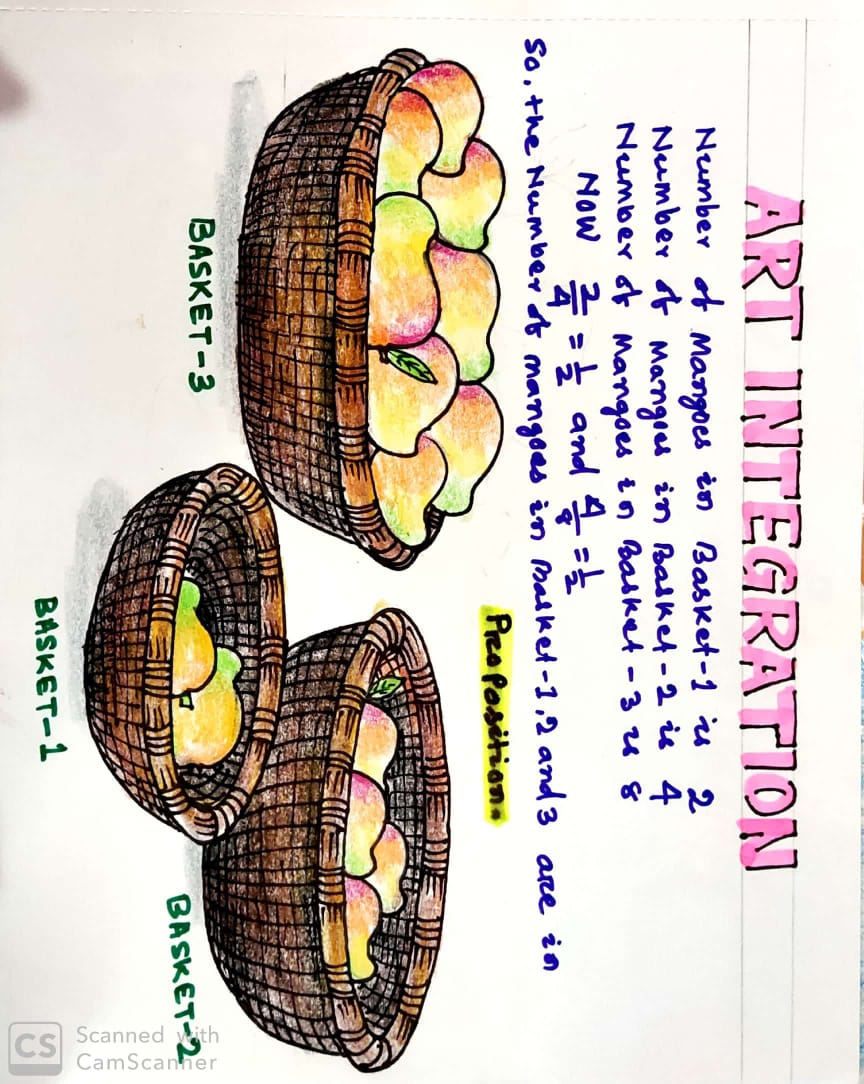 ART INTEGRATION
Number of Mangoes in Basket-1 is 2
Number of Mangoes in Basket-2 is 4
Number of Mangoes in Basket-3 is 8
Now 2/4 = 1/2 and 4/8 = 1/2
So, the Number of mangoes in Basket-1,2 and 3 are in
Proposition.
BASKET-3
BASKET-1
BASKET-2
CS Scanned with
CamScanner